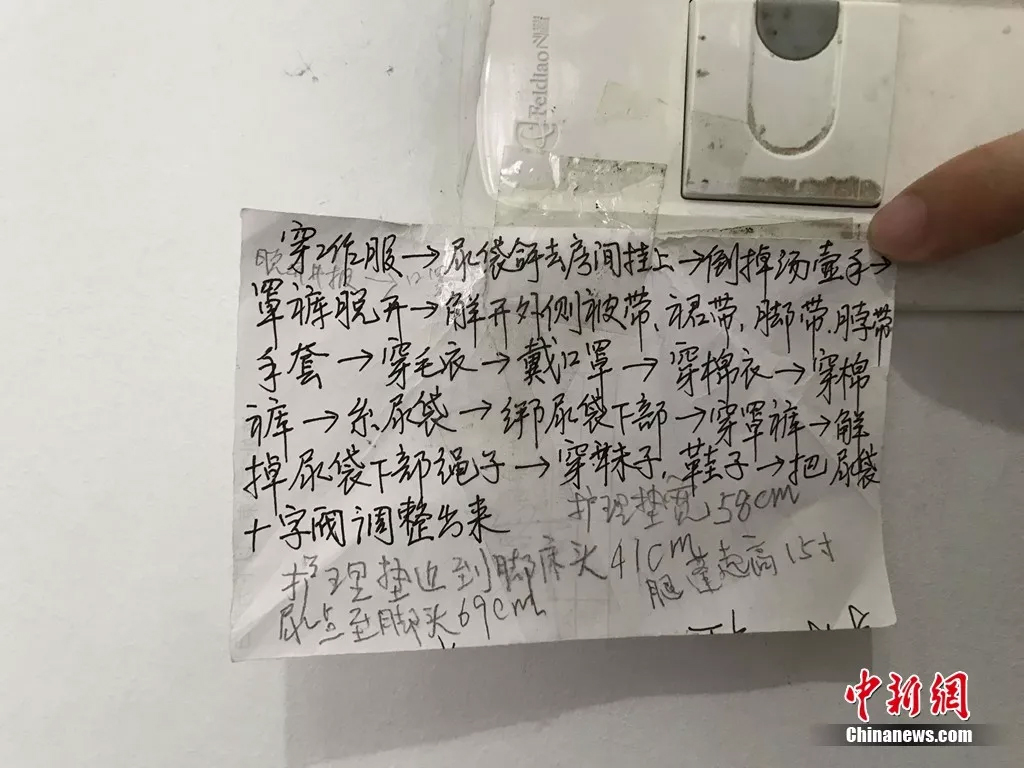 Feidiao
穿工作服→尿袋 去房间挂上→倒掉汤壶手→
罩裤脱开→解开外侧被带、裙带、脚带、脖带
手套→穿毛衣→戴口罩→穿棉衣→穿棉
裤→糸尿袋→绑尿袋下部→穿罩裤→解
掉尿袋下部绳子→穿袜子、鞋子→把尿袋
十字阀调整出来
护理垫宽58cm
护理垫边到脚床头41cm
腿 起高15寸
尿 至脚头69cm
中新网
Chinanews.com